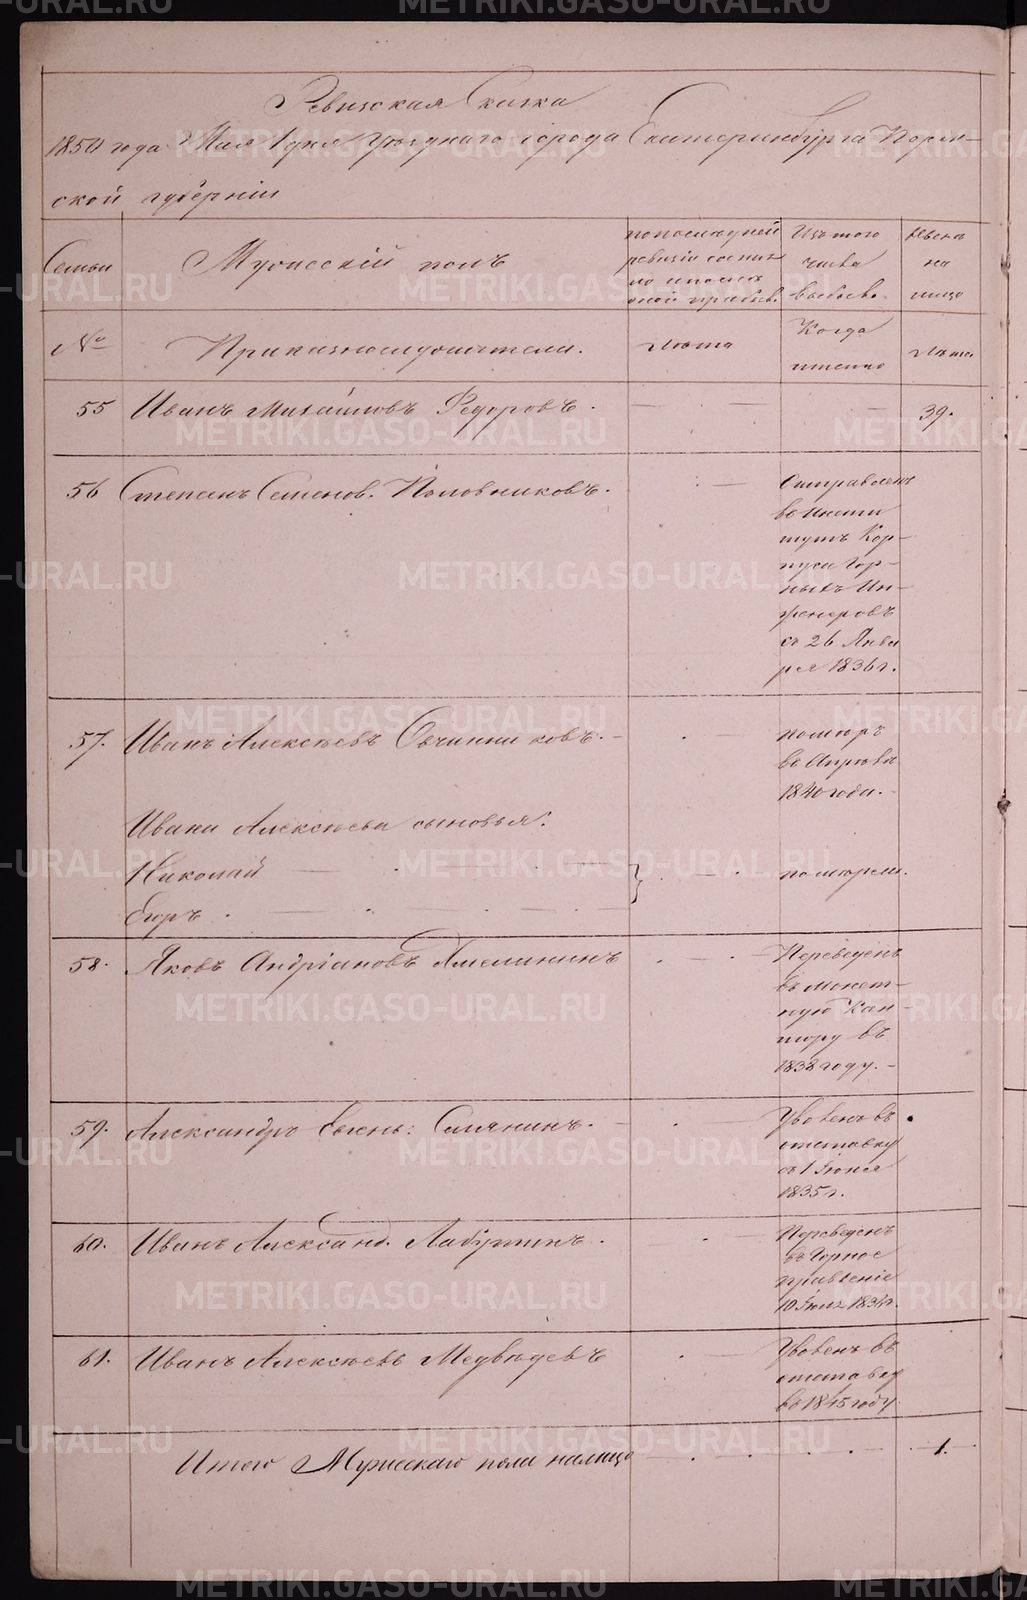 Ревизская Сказка
1850 года Мая 1 дня Уѣзднаго города Екатеринбурга Перм-
ской губерніи
Семьи
Мужескій полъ
по послѣдней
ревизіи состоя-
ло и послѣ
оной прибыв.
Изъ того
числа
выбыло.
Нынѣ
на
лицо
№
Приказнослужители.
Лѣта
Когда
именно
Лѣта
55 Иванъ Михайловъ Федоровъ. 39.
56 Степанъ Семенов. Половниковъ.
Отправленъ
въ Инсти
тутъ Кор-
пуса Гор-
ныхъ Ин-
женеровъ
съ 26 Янва
ря 1836 г.
57. Иванъ Алексѣевъ Овчинниковъ.
померъ
въ Апрѣлѣ
1840 года.
Ивана Алексѣева сыновья:
Николай
Егоръ.
померли.
58. Яковъ Андріановъ Амелининъ
Переведенъ
въ монет-
ную Кан-
тору въ
1838 году.
59. Александръ Евгень: Смянинъ.
Уволенъ въ
отставку
съ 1 Іюня
1835 г.
60. Иванъ Александ. Лабутинъ.
Переведенъ
въ Горное
правленіе
10 Іюля 1834 г.
61. Иванъ Алексѣевъ Медвѣдевъ
Уволенъ въ
отставку
въ 1845 году
Итого Мужескаго пола налицо 1.
METRIKI.GASO-URAL.RU